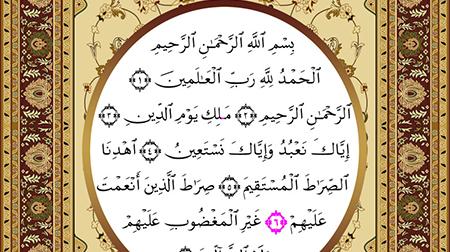 بِسْمِ ٱللَّهِ ٱلرَّحْمَٰنِ ٱلرَّحِيمِ
ٱلْحَمْدُ لِلَّهِ رَبِّ ٱلْعَٰلَمِينَ ﴿١﴾
ٱلرَّحْمَٰنِ ٱلرَّحِيمِ ﴿٢﴾ مَٰلِكِ يَوْمِ ٱلدِّينِ ﴿٣﴾
إِيَّاكَ نَعْبُدُ وَإِيَّاكَ نَسْتَعِينُ ﴿٤﴾ ٱهْدِنَا
ٱلصِّرَٰطَ ٱلْمُسْتَقِيمَ ﴿٥﴾ صِرَٰطَ ٱلَّذِينَ أَنْعَمْتَ
عَلَيْهِمْ ﴿٦﴾ غَيْرِ ٱلْمَغْضُوبِ عَلَيْهِمْ